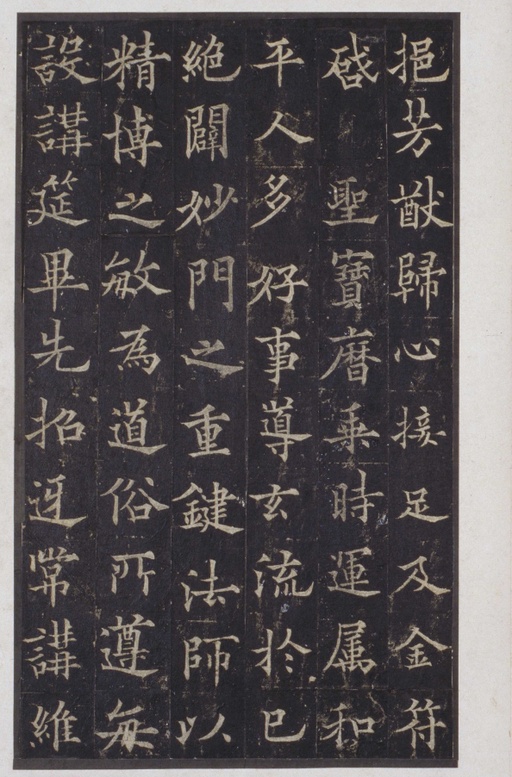 挹芳猷歸心接足及金符
啓 聖寶曆乗時運属和
平人多好事導玄流於巳
絶闢妙門之重鍵法師以
精博之敏為道俗所遵每
設講筵畢先招迓常講維